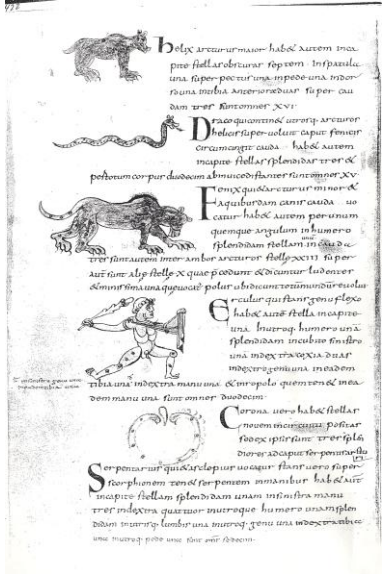 helix arcturus maior habet autem inca
pite stellas obscuras septem. In spatula
una super pectus una in pede una In dor
so una In tibia anteriore duas super cau
dam tres sunt omnes XVI
Draco qui continet utrosq. arcturos
helicis super voluit caput fenicis
circumcingit cauda. habet autem
in capite stellas splendidas tres &
per totum corpus duodecim ab invice distantes sunt omnes XV
Fenix quie arcturus minor &
a quibusdam canis cauda vo
catur habet autem per unum
quemque angulum in humero
splendidam stellam. in cauda
tres sunt autem inter ambos arcturos stelle XXIII super
aut sunt alie stelle X quae pcedunt & dicuntur ludentes
& minissima una que vocat polus ubi dicunt totu mundu revolui
Erculus qui stans genu flexo
habet aute stella in capite
una. In utroq. humero una
splendidam in cubito sinistro
una in dextra coxia duas
in dextro genu una in eadem
tibia una in dextra manu una & in ropolo quem tenet in ea
dem manu una sunt omnes duodecim
Corona vero habet stellas
novem in circuitu positas
sed ex ipsis sunt tres splen
diores ad caput serpentis
Serpentarius qui & asclepius vocatur stans vero super
scorphionem tenet serpentem in manibus habet aut
in capite stellam splendidam unam in sinistra manu
tres in dextra quattuor in utroque humero unam splen
didam in utrisq. lumbis una in utroq. genu una in dextra tibia
una in utroq. pede una sunt omns sedecim.